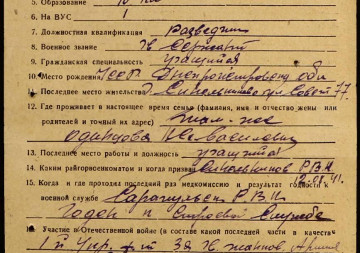 5. Образование
6. На ВУС 1
7. Должностная квалификация разведчик
8. Военное звание Гв Сержант
9. Гражданская специальность учащийся
10. Место рождения УССР Днепропетровская обл
11. Последнее место жительства г. Синельниково Совет 77.
12. Где проживает в настоящее время семья (фамилия, имя и отчество жены или
родителей и точный их адрес) там-же
Одинцова Василиевн
13. Последнее место работы и должность учащийся
14. Каким райгорвоенкоматом и когда призван Синельников Р.В.К
12.08.41.
15. Когда и где проходил последний раз медкомиссию и результат годности к
военной службе Сарапульск. Р.В.К
Годен к Строевой Службе
16. Участие в Отечественной войне (в составе какой последней части в качестве
1й Укр. ф-т 3я Гв. танков Армия